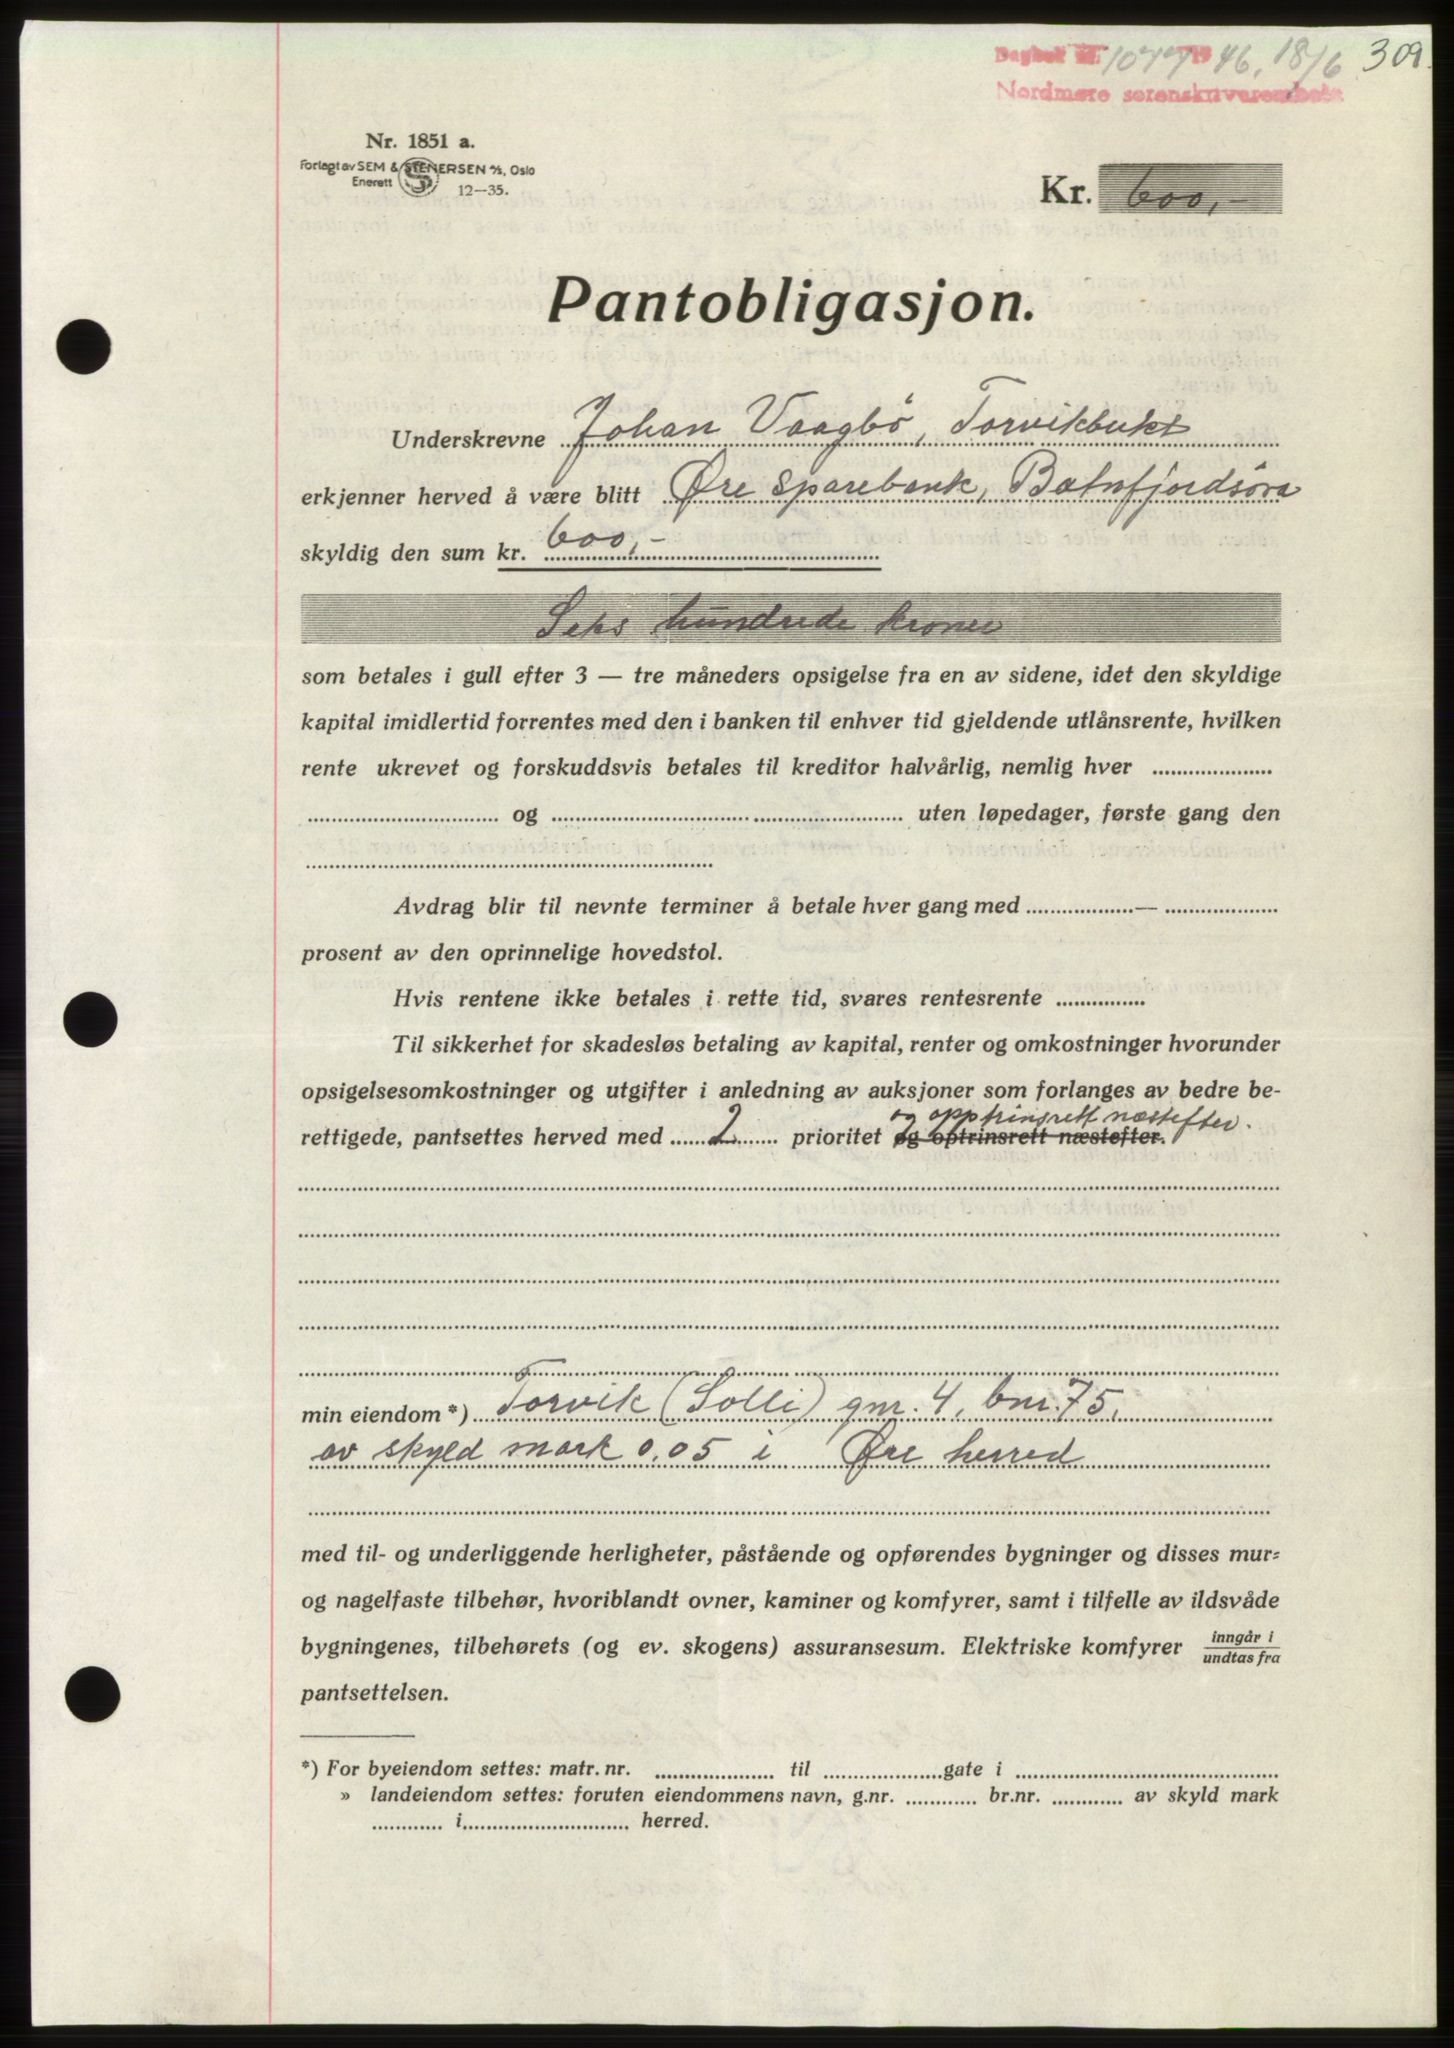 Dagbok nr. 1077 19 46, 18/6 309.
Nordmøre sorenskriverembete
Nr. 1851 a.
Forlagt av SEM & STENERSEN A/S, Oslo
Enerett 12—35.
Kr. 600,-
Pantobligasjon.
Underskrevne Johan Vaagbö, Torvikbukt
erkjenner herved å være blitt Øre sparebank, Batnfjordsöra
skyldig den sum kr. 600,-
Seks hundrede kroner
som betales i gull efter 3 — tre måneders opsigelse fra en av sidene, idet den skyldige
kapital imidlertid forrentes med den i banken til enhver tid gjeldende utlånsrente, hvilken
rente ukrevet og forskuddsvis betales til kreditor halvårlig, nemlig hver ....................
................................ og ........................................................... uten løpedager, første gang den
....................................................................
Avdrag blir til nevnte terminer å betale hver gang med ..................— ...................
prosent av den oprinnelige hovedstol.
Hvis rentene ikke betales i rette tid, svares rentesrente ...............
Til sikkerhet for skadesløs betaling av kapital, renter og omkostninger hvorunder
opsigelsesomkostninger og utgifter i anledning av auksjoner som forlanges av bedre be-
og opptrinsrett næstefter.
rettigede, pantsettes herved med 2 prioritet og optrinsrett næstefter.
min eiendom *) Torvik (Solli) gnr. 4, bnr. 75,
av skyld mark 0,05 i Øre herred
med til- og underliggende herligheter, påstående og opførendes bygninger og disses mur-
og nagelfaste tilbehør, hvoriblandt ovner, kaminer og komfyrer, samt i tilfelle av ildsvåde
bygningenes, tilbehørets (og ev. skogens) assuransesum. Elektriske komfyrer inngår i
undtas fra
pantsettelsen.
*) For byeiendom settes: matr. nr. .................... til ....................gate i ............................................
» landeiendom settes: foruten eiendommens navn, g.nr. ............ br.nr. ............ av skyld mark
............ i............................ herred.